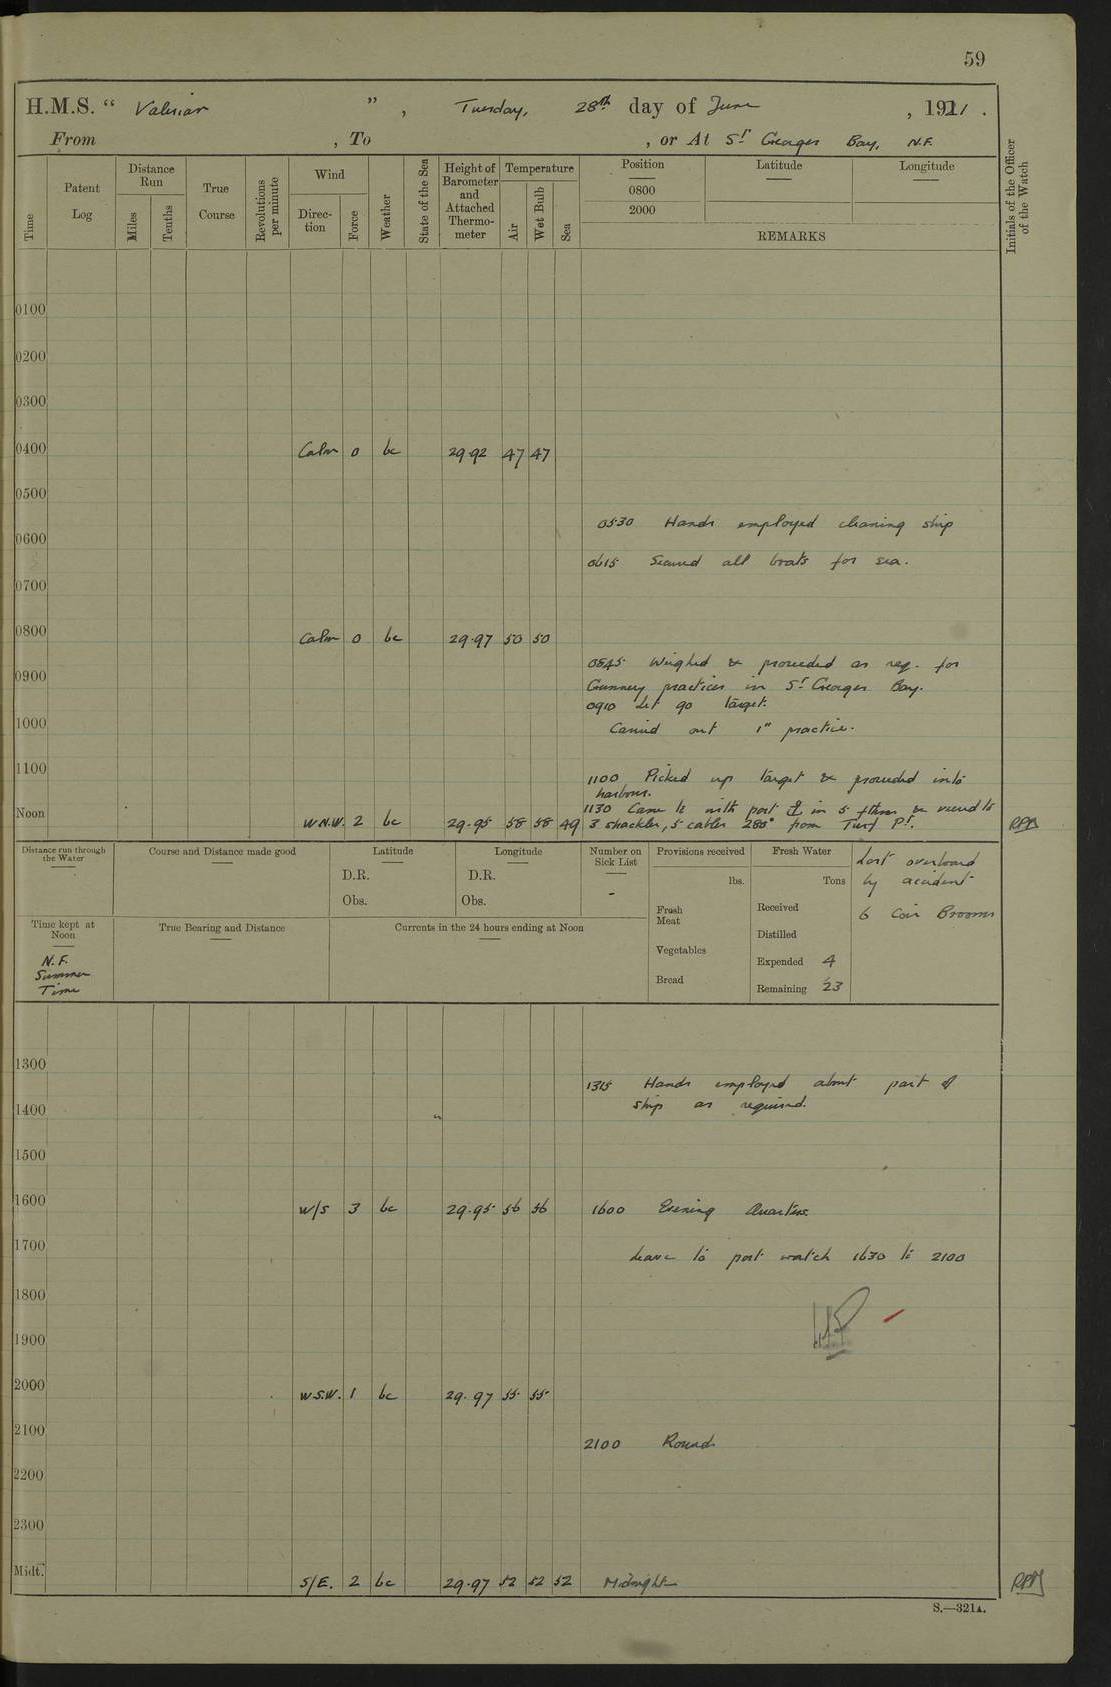 59
H.M.S. “ Valerian ” , Tuesday, 28th day of June , 1921 .
From , To , or At St Georges Bay, N.F.
Time
Patent Log
Distance Run
Miles
Tenths
True Course
Revolutions per minute
Wind
Direction
Force
Weather
State of the Sea
Height of Barometer and Attached Thermometer
Temperature
Air
Wet Bulb
Sea
Position
0800
2000
Latitude
Longitude
REMARKS
Initials of the Officer of the Watch
0100
0200
0300
0400 Calm 0 bc 29.92 47 47
0500
0530 Hands employed cleaning ship
0600
0615 Secured all boats for sea.
0700
0800 Calm 0 bc 29.97 50 50
0845 Weighed & proceeded as req. for
0900
Gunnery practices in St Georges Bay.
0910 Let go target.
1000 Carried out 1" practice.
1100
1100 Picked up target & proceeded into
harbour.
1130 Came to with port ⚓ in 5 fthms & veered to
Noon W.N.W. 2 bc 29.95 58 58 49 3 shackles, 5 cables 280° from Turf Pt.
Distance run through the Water
Course and Distance made good
Latitude
D.R.
Obs.
Longitude
D.R.
Obs.
Number on Sick List
-
Provisions received
lbs.
Fresh Meat
Vegetables
Bread
Fresh Water
Tons
Received
Distilled
Expended 4
Remaining 23
Lost overboard
by accident
6 Coir Brooms
Time kept at Noon
N.F.
Summer
Time
True Bearing and Distance
Currents in the 24 hours ending at Noon
1300
1315 Hands employed about part of
1400 ship as required.
1500
1600 W/S 3 bc 29.95 56 56 1600 Evening Quarters
1700 Leave to port watch 1630 to 2100
1800
1900
2000 W.S.W. 1 bc 29.97 55 55
2100
2100 Rounds
2200
2300
Midt. S/E. 2 bc 29.97 52 52 52 Midnight
S.—321A.